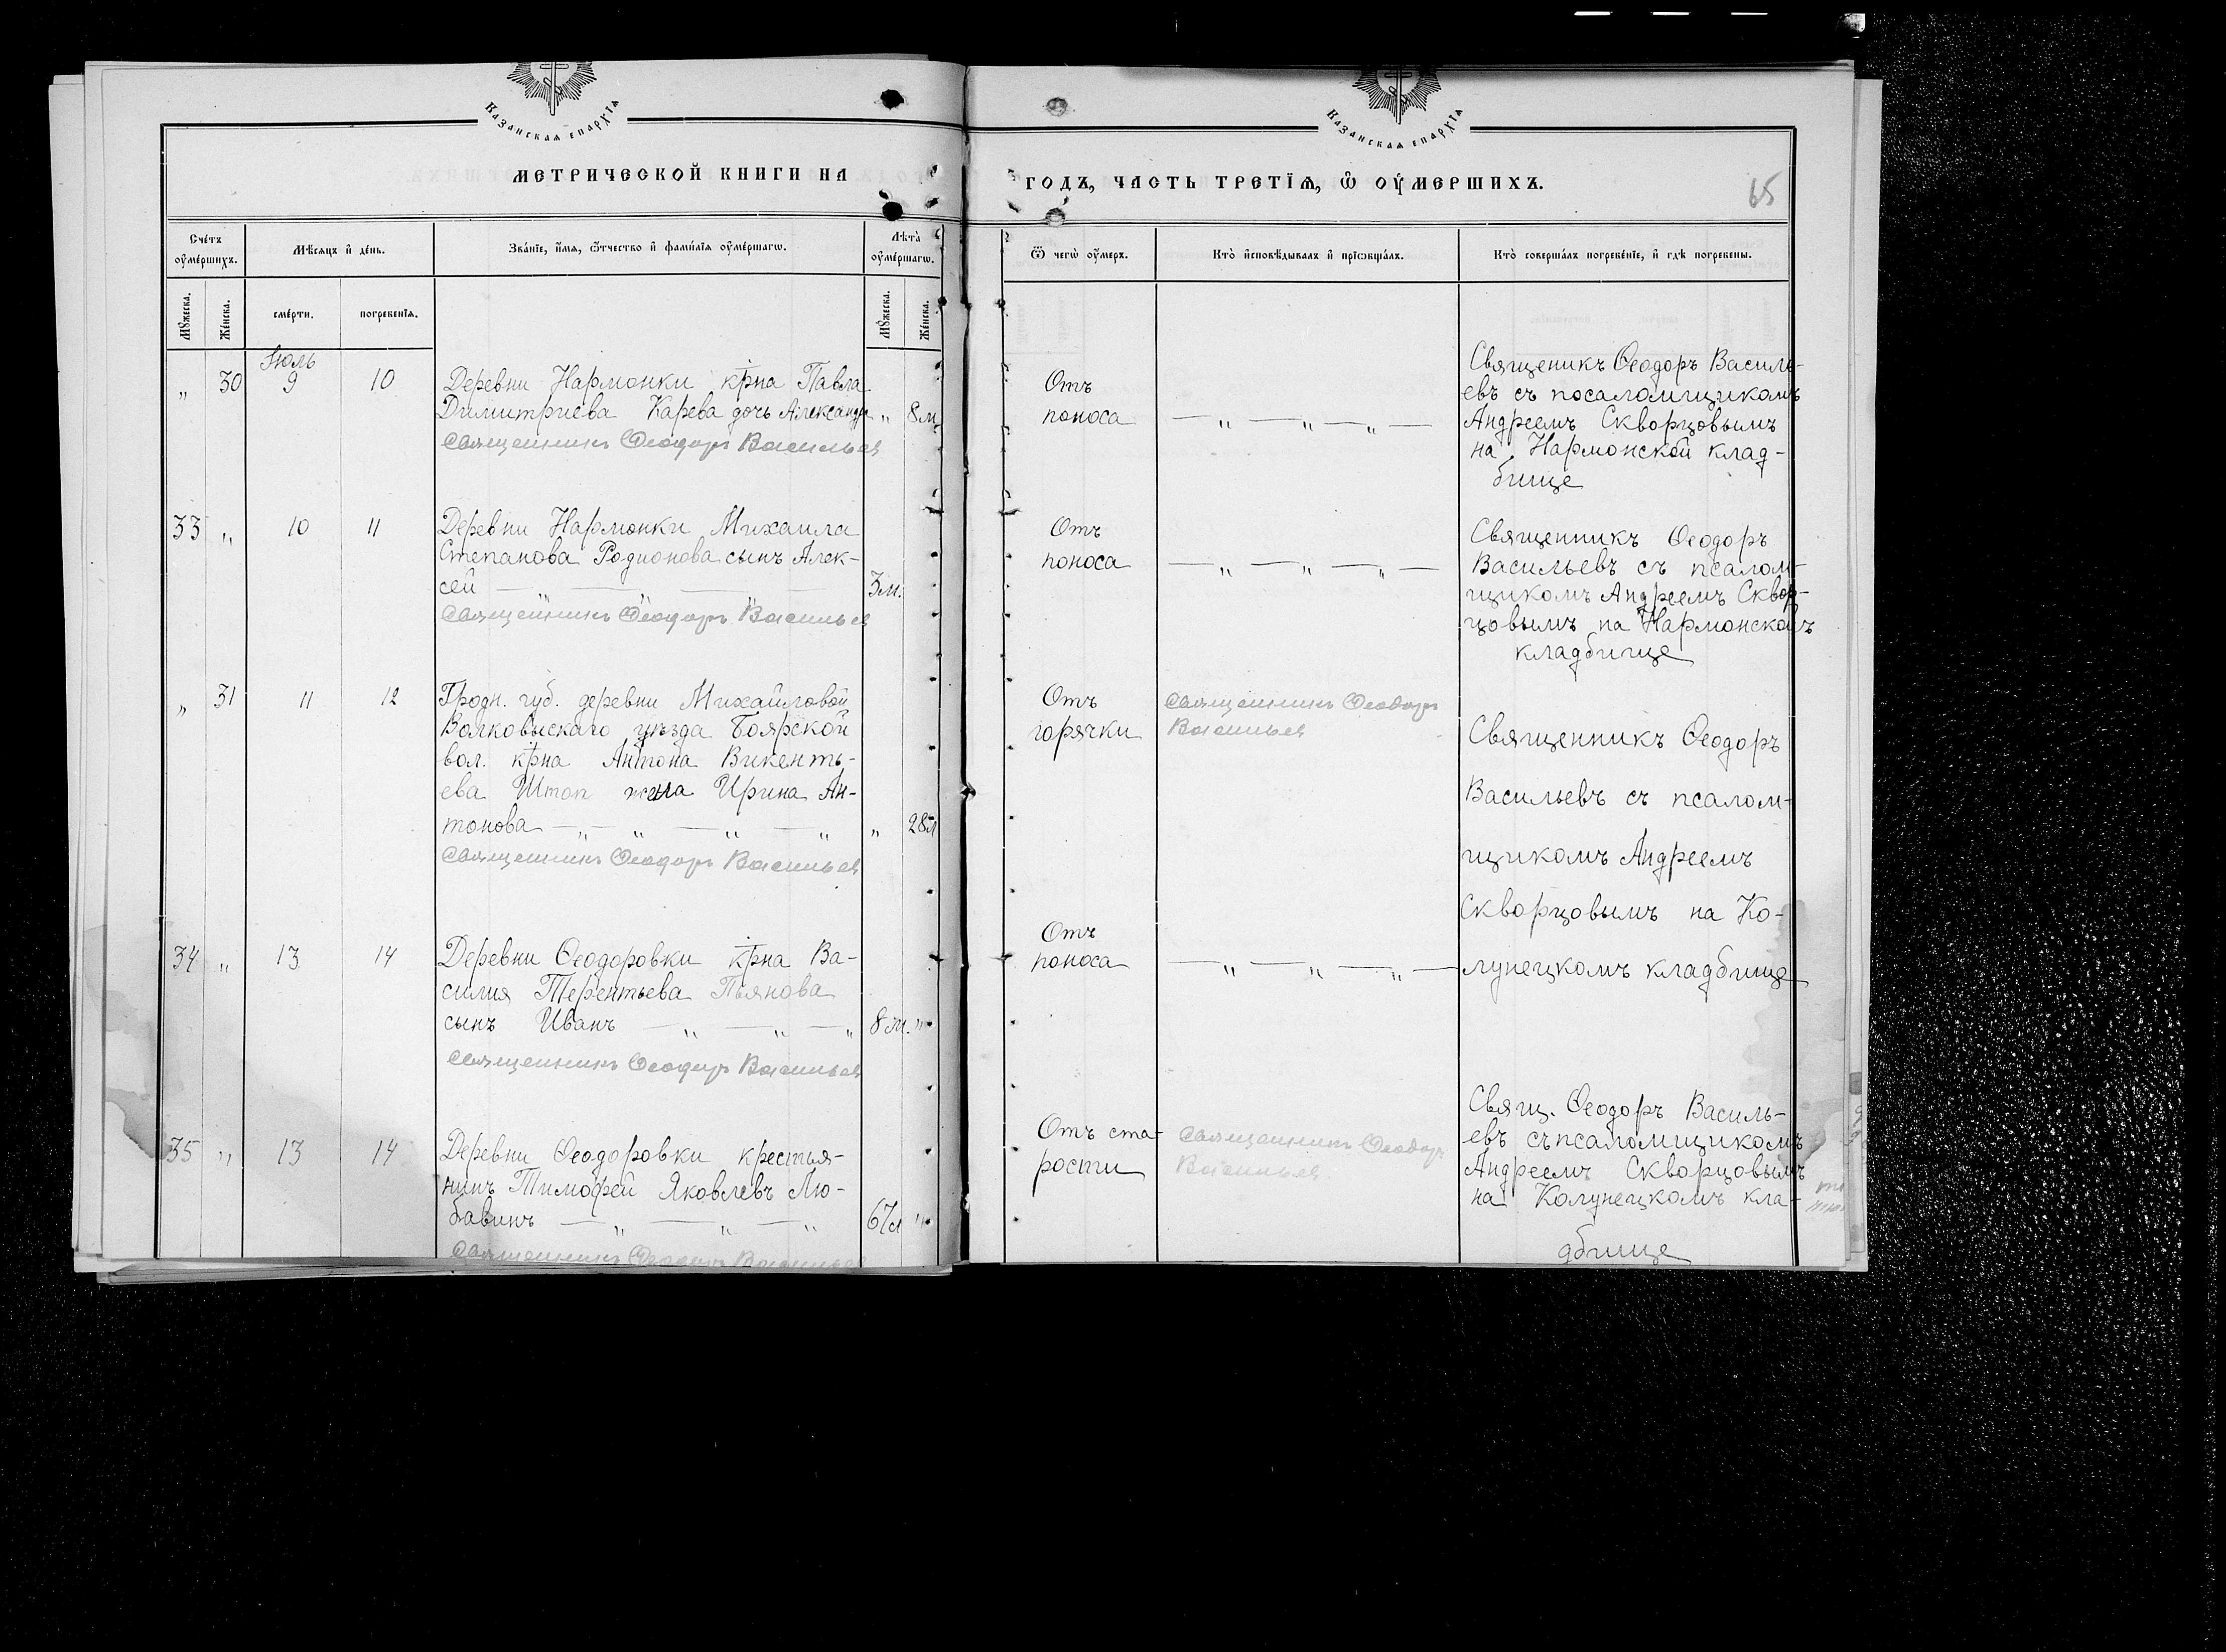 Казанская епархїя
Казанская епархїя
МЕТРИЧЕСКОЙ КНИГИ НА
ГОДЪ, ЧАСТЬ ТРЕТЇЯ, Ѽ ОУМЕРШИХЪ.
65
Счетъ оумершихъ.
Мѣсяцъ и день.
Званїе, имя, ѿчество и фамилїя оумершагѡ.
Лѣта оумершагѡ.
Ѿ чегѡ оумеръ.
Кто исповѣдывалъ и прїѡбщалъ.
Кто совершалъ погребенїе, и гдѣ погребены.
Мꙋжеска.
Женска.
смерти.
погребенїя.
Мꙋжеска.
Женска.
Іюль
„ 30 9 10
Деревни Нармонки кр̃на Павла
Димитріева Карева дочь Александр „ 8 м.
Священникъ Ѳеодоръ Васильев
Отъ
поноса — „ — „ — „ —
Священикъ Ѳеодоръ Василь-
евъ съ посаломщикомъ
Андреемъ Скворцовымъ
на Нармонской клад-
бище
33 „ 10 11
Деревни Нармонки Михаила
Степанова Родионова сынъ Алек-
сей — 3 м.
Священникъ Ѳеодоръ Васильев
Отъ
поноса — „ — „ — „ —
Священникъ Ѳеодоръ
Васильевъ съ псалом-
щикомъ Андреемъ Сквор-
цовымъ на Нармонскомъ
кладбище
„ 31 11 12
Гродн. губ. деревни Михайловой
Волковыскаго уѣзда Боярской
вол. кр̃на Антона Викенть-
ева Штоп жена Ирина Ан-
тонова — „ — „ — „ — „ „ 28 л
Священникъ Ѳеодоръ Васильев
Отъ
горячки
Священникъ Ѳеодоръ
Васильев
Священникъ Ѳеодоръ
Васильевъ съ псалом-
щикомъ Андреемъ
Скворцовымъ на Ко-
лунецкомъ кладбище
34 „ 13 14
Деревни Ѳеодоровки кр̃на Ва-
силия Терентьева Пьянова
сынъ Иванъ — „ — „ — „ 8 м. „
Священникъ Ѳеодоръ Васильев
Отъ
поноса — „ — „ — „ —
35 „ 13 14
Деревни Ѳеодоровки крестья-
нинъ Тимофей Яковлевъ Лю-
бавинъ — „ — „ — „ 67 л „
Священникъ Ѳеодоръ Васильев
Отъ ста-
рости
Священникъ Ѳеодоръ
Васильев
Свящ. Ѳеодоръ Василь-
евъ съ псаломщикомъ
Андреемъ Скворцовымъ
на Колунецкомъ кла-
дбище